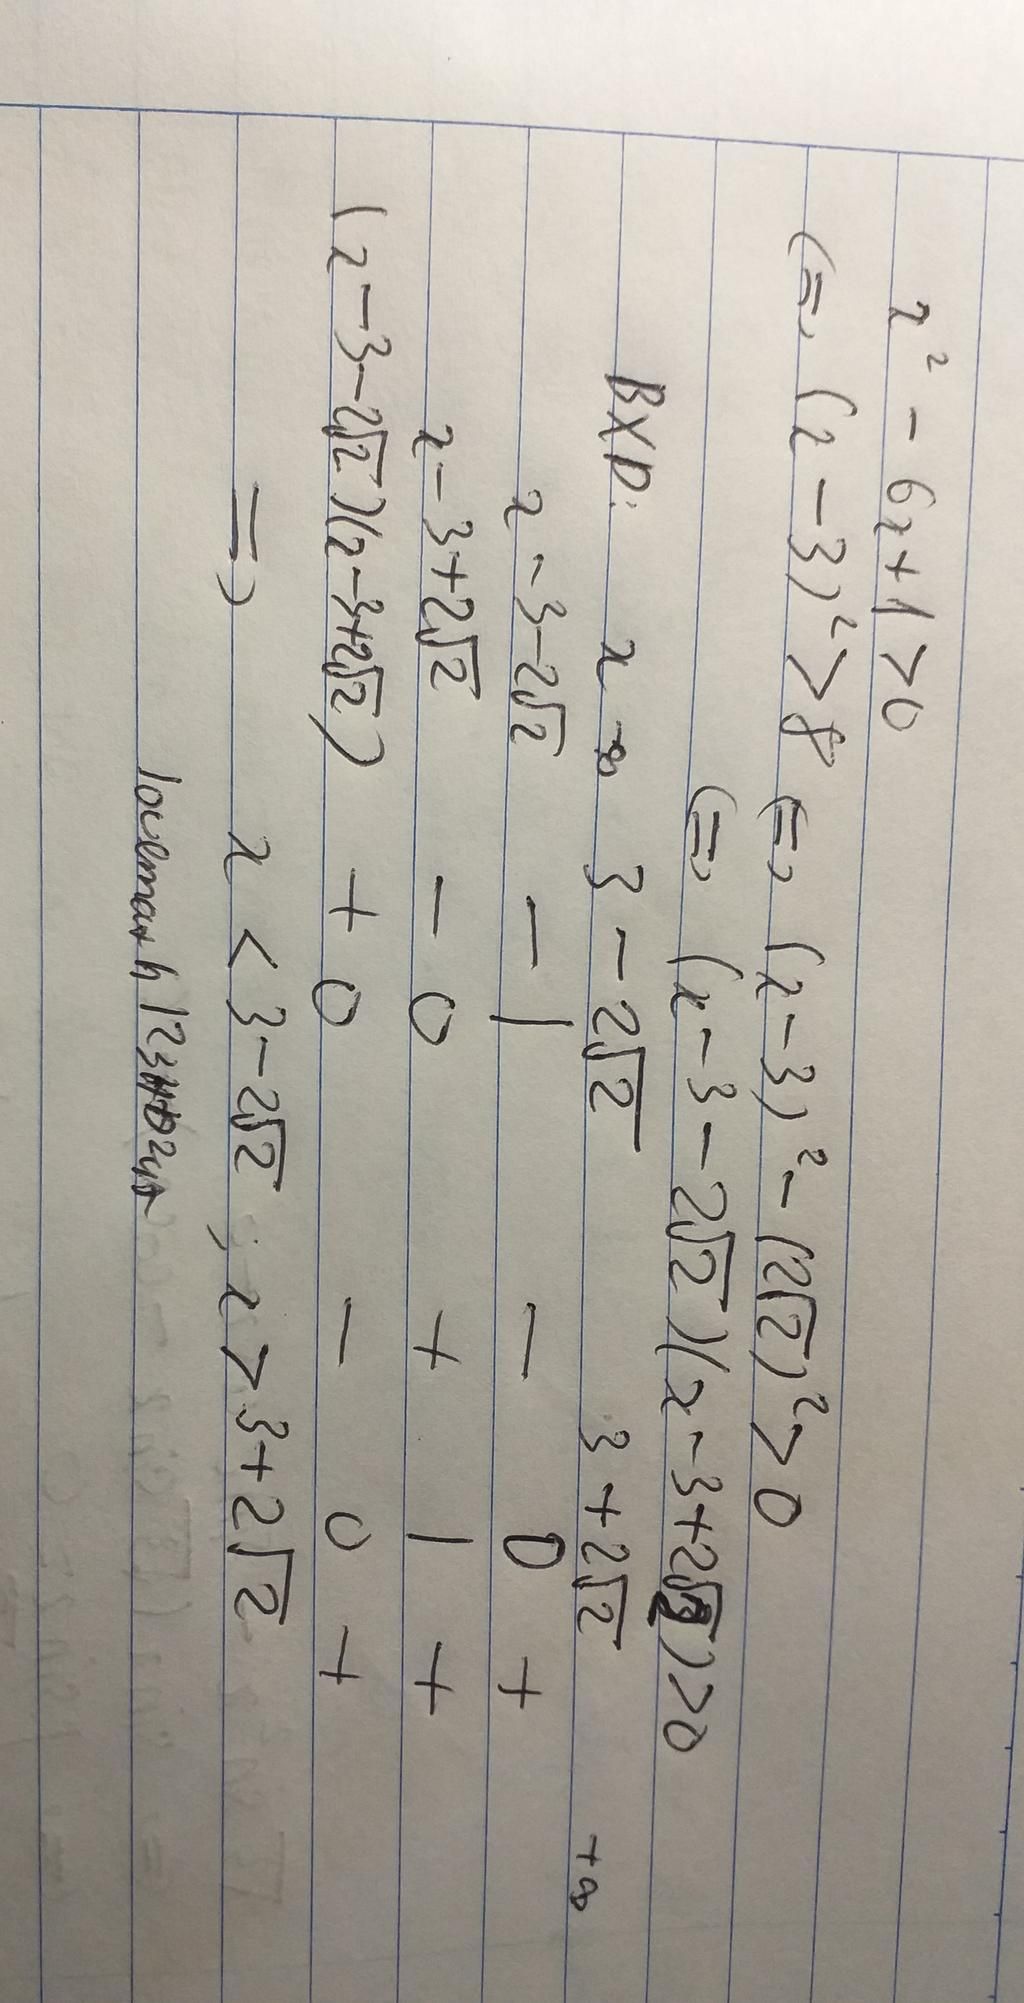 x² - 6x + 1 > 0
(=) (x - 3)² > 8 (=) (x - 3)² - (2√2)² > 0
(=) (x - 3 - 2√2)(x - 3 + 2√2) > 0
BXD: x -∞ 3 - 2√2 3 + 2√2 +∞
x - 3 - 2√2 - | - 0 +
x - 3 + 2√2 - 0 + | +
(x - 3 - 2√2)(x - 3 + 2√2) + 0 - 0 +
=) x < 3 - 2√2 , x > 3 + 2√2